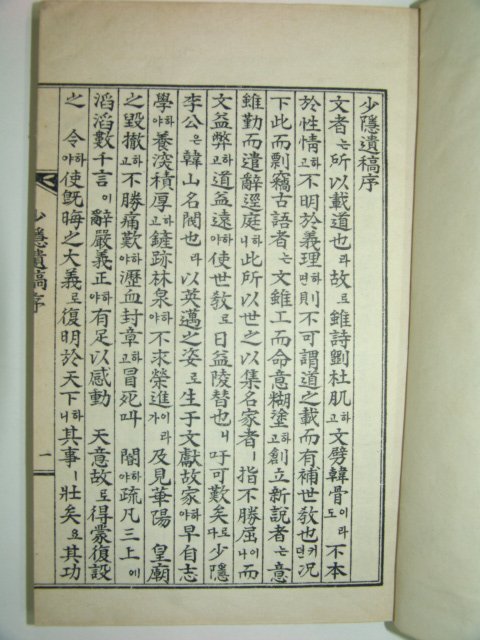 少隱遺稿序
文者는所以載道也라故로雖詩劉杜肌하고文劈韓骨이라도不本
於性情하고不明於義理하면則不可謂道之載而有補世敎也커든況
下此而剽竊古語者는文雖工而命意糊塗하고創立新說者는意
雖勤而遣辭逕庭하니此所以世之以集名家者ㅣ指不勝屈이나而
文益弊하고道益遠하야使世敎로日益陵替也ㅣ니吁可歎矣로다少隱
李公은韓山名閥也라以英邁之姿로生于文獻故家하야早自志
學하야養深積厚하고鏟跡林泉하야不求榮進이라가及見華陽 皇廟
之毀撤하고不勝痛歎하야瀝血封章하고冒死叫 閤하야疏凡三上에
滔滔數千言이辭嚴義正하야有足以感動 天意故로得蒙復設
之 令하야使旣晦之大義로復明於天下하니其事ㅣ壯矣요其功
少隱遺稿序
一